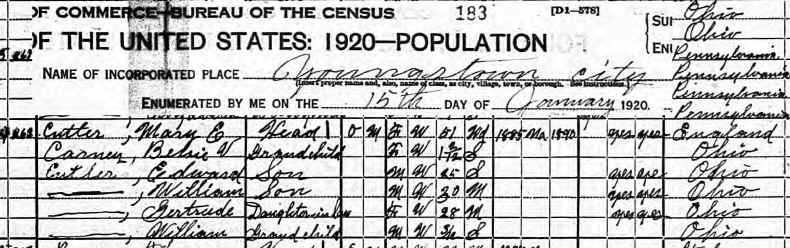 OF COMMERCE—BUREAU OF THE CENSUS 183 [D1-578] Ohio
Ohio
OF THE UNITED STATES: 1920—POPULATION Pennsylvania
NAME OF INCORPORATED PLACE Youngstown City Pennsylvania
[Insert proper name and, also, name of class, as city, village, town, or borough. See instructions.] Pennsylvania
ENUMERATED BY ME ON THE 15th DAY OF January 1920. Pennsylvania
Cutler, Mary E Head 1 O M F W 51 Wd 1885 Na 1890 yes yes England
Carney, Belsie V Grandchild F W S Ohio
Cutler, Edward Son M W 25 S yes yes Ohio
—, William Son M W 30 M yes yes Ohio
—, Gertrude Daughter in law F W 28 M yes yes Ohio
—, William Grand child M W S Ohio